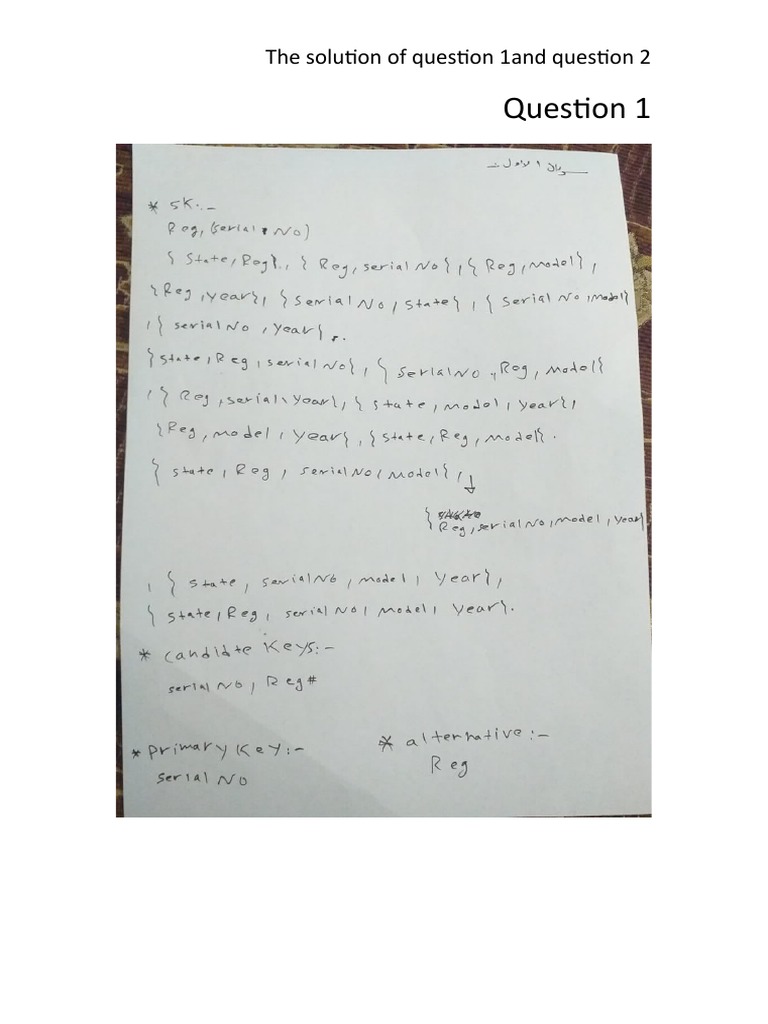 The solution of question 1and question 2
Question 1
* SK:-
Reg, (serial No)
{ State, Reg}, { Reg, serial No}, { Reg, model},
{Reg, year}, {Serial No, State}, { Serial No, model}
, { serial No, year}.
{state, Reg, serial No}, { Serial No, Reg, Model}
, { Reg, serial, year}, { state, model, year},
{Reg, model, year}, {state, Reg, model}.
{ state, Reg, serial No, Model},
{ Reg, serial No, model, year}
, { state, serial No, model, year},
{ state, Reg, serial No, model, year}.
* Candidate Keys:-
serial No, Reg#
* Primary Key:-
serial No
* alternative:-
Reg